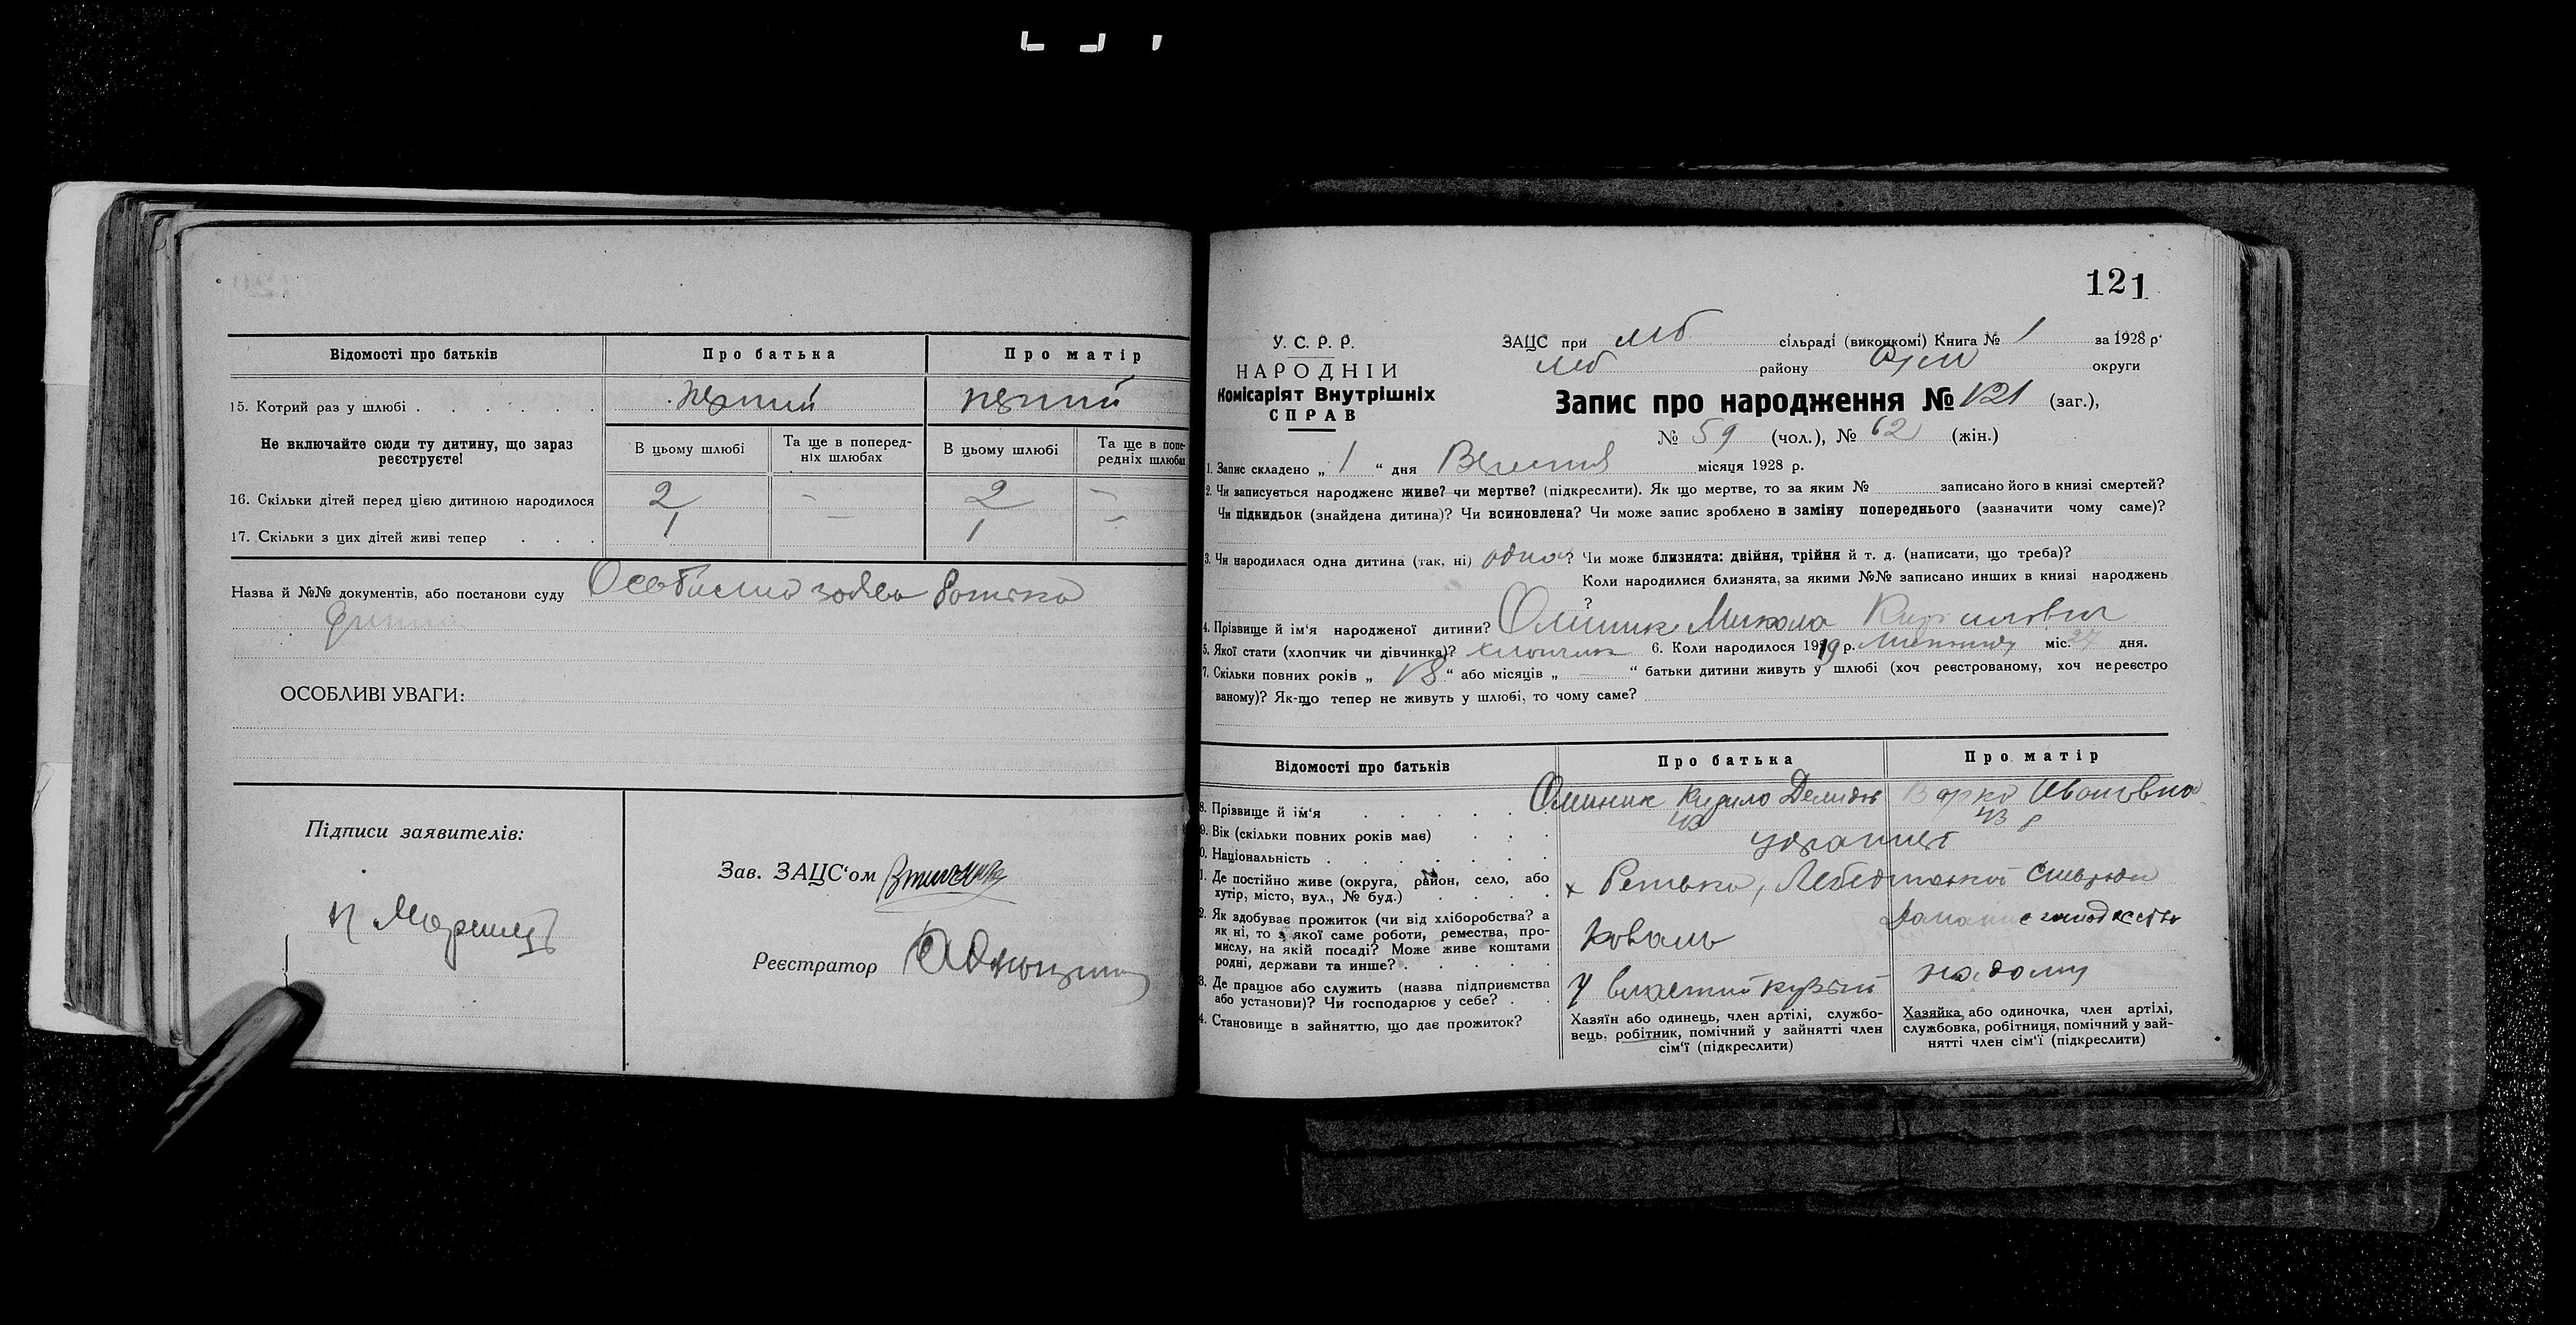 Відомості про батьків Про батька Про матір
15. Котрий раз у шлюбі . . . . . . . перший перший
Не включайте сюди ту дитину, що зараз реєструєте!
В цьому шлюбі Та ще в поперед-ніх шлюбах В цьому шлюбі Та ще в попе-редніх шлюбах
16. Скільки дітей перед цією дитиною народилося 2 — 2 —
17. Скільки з цих дітей живі тепер . . . . 1 — 1 —
Назва й №№ документів, або постанови суду Особиста заява батька
ОСОБЛИВІ УВАГИ:
Підписи заявителів:
Зав. ЗАЦС‘ом
Реєстратор
121
У. С. Р. Р.
НАРОДНІЙ
Комісаріят Внутрішніх
СПРАВ
ЗАЦС при Леб сільраді (виконкомі) Книга № 1 за 1928 р.
Леб району Сум округи
Запис про народження № 121 (заг.),
№ 59 (чол.), № 62 (жін.)
1. Запис складено „ 1 “ дня Вересня місяця 1928 р.
2. Чи записується народжене живе? чи мертве? (підкреслити). Як що мертве, то за яким № записано його в книзі смертей?
Чи підкидьок (знайдена дитина)? Чи всиновлена? Чи може запис зроблено в заміну попереднього (зазначити чому саме)?
3. Чи народилася одна дитина (так, ні) одна? Чи може близнята: двійня, трійня й т. д. (написати, що треба)?
Коли народилися близнята, за якими №№ записано инших в книзі народжень
?
4. Прізвище й ім‘я народженої дитини? Олійник Микола Кирилович
5. Якої стати (хлопчик чи дівчинка)? хлопчик 6. Коли народилося 1919 р. міс. 27 дня.
7. Скільки повних років „ 18 “ або місяців „ — “ батьки дитини живуть у шлюбі (хоч реєстрованому, хоч нереєстро
ваному)? Як-що тепер не живуть у шлюбі, то чому саме?
Відомості про батьків Про батька Про матір
8. Прізвище й ім‘я . . . . . . Олійник Кирило Демидов Варка Ивановна
9. Вік (скільки повних років має) . . . 43 43 р
0. Національність . . . . . . . українці
1. Де постійно живе (округа, район, село, або
хутір, місто, вул., № буд.) . . . . х Ретька, Лебединської Сільради
2. Як здобуває прожиток (чи від хліборобства? а
як ні, то з якої саме роботи, ремества, про-
мислу, на якій посаді? Може живе коштами
родні, держави та инше? . . . . . Коваль
3. Де працює або служить (назва підприємства
або установи)? Чи господарює у себе? . . У власній кузні на дому
4. Становище в зайняттю, що дає прожиток?
Хазяїн або одинець, член артілі, службо-
вець, робітник, помічний у зайнятті член
сім‘ї (підкреслити)
Хазяйка або одиночка, член артілі,
службовка, робітниця, помічний у зай-
нятті член сім‘ї (підкреслити)